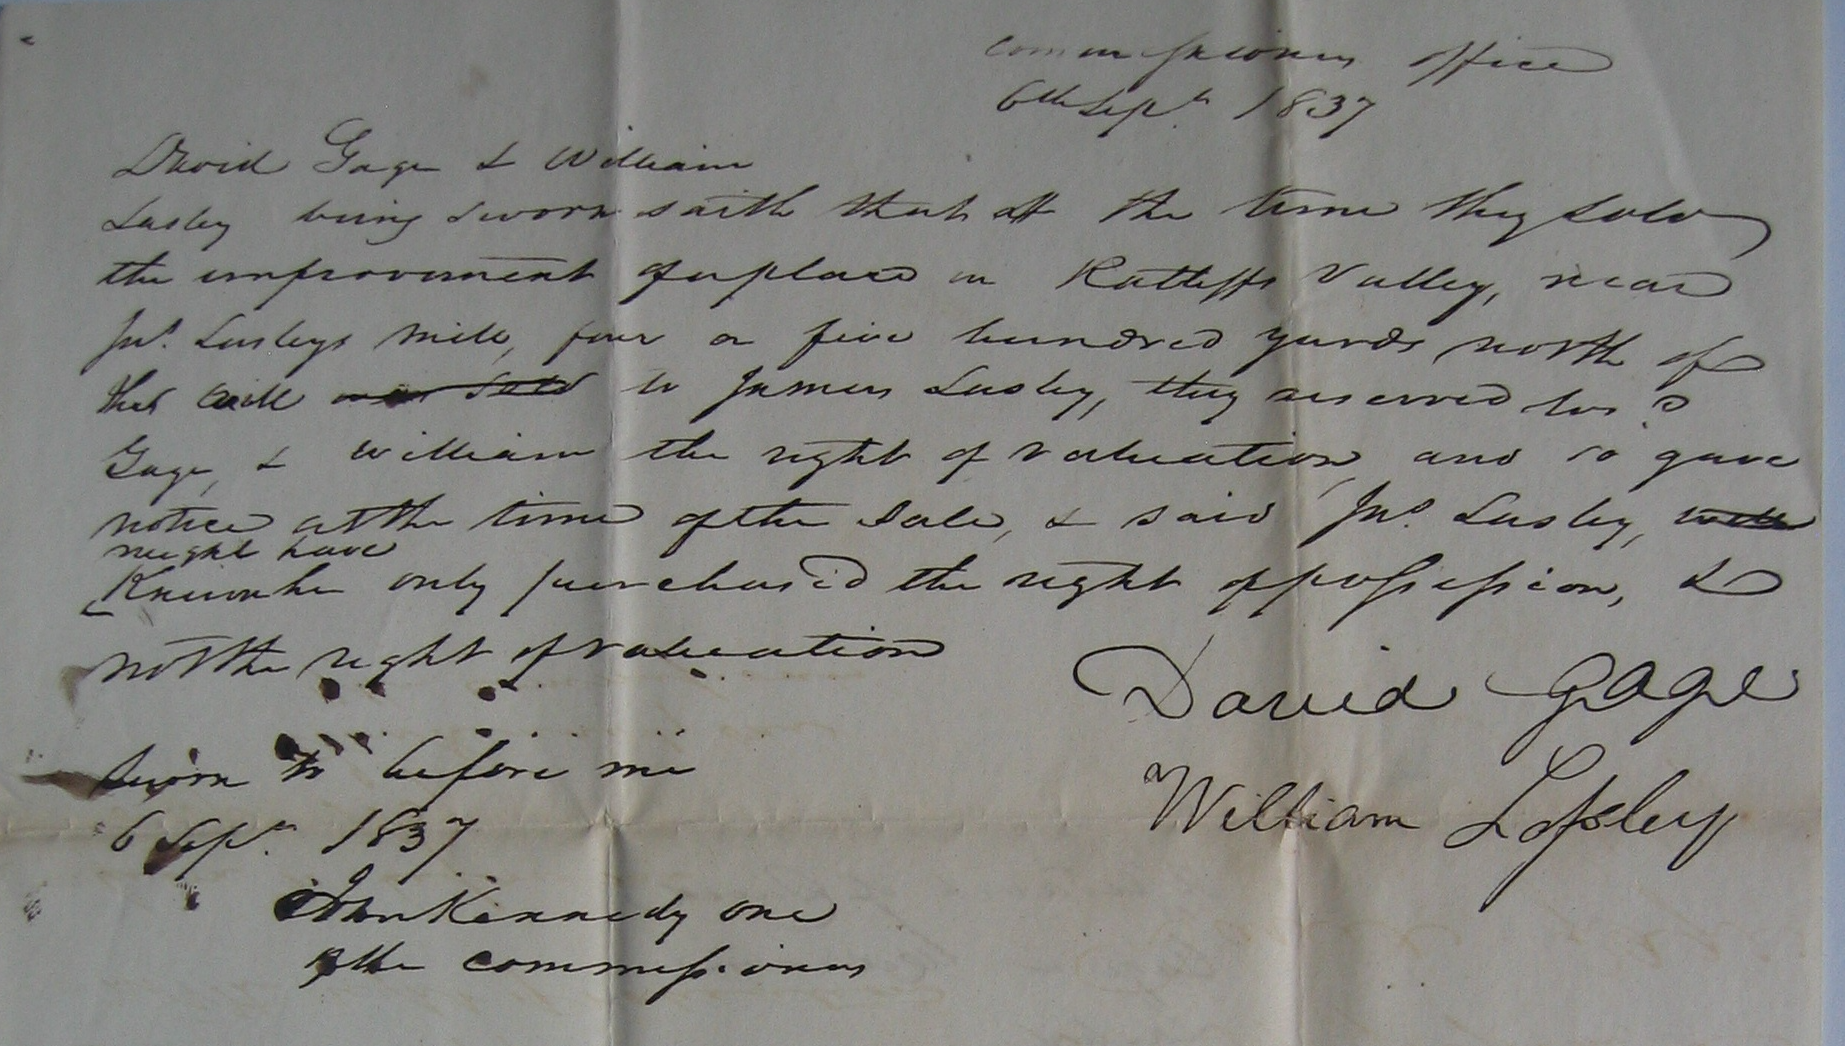 Commissioners office
6th Sept. 1837
David Gage & William
Lasley being sworn saith that at the time they sold
the improvement of a place in Ratliffs Valley, near
Jno. Lasleys Mill, four or five hundred yards north of
that to James Lasley, they reserved to sd
Gage, & William the right of valuation and so gave
notice at the time of the sale, & said Jno. Lasley,
might have
Known he only purchas'd the right of possession, &
not the right of valuation
David Gage
William Lasley
Sworn to before me
6 Sept. 1837
John Kennedy one
of the commissioners